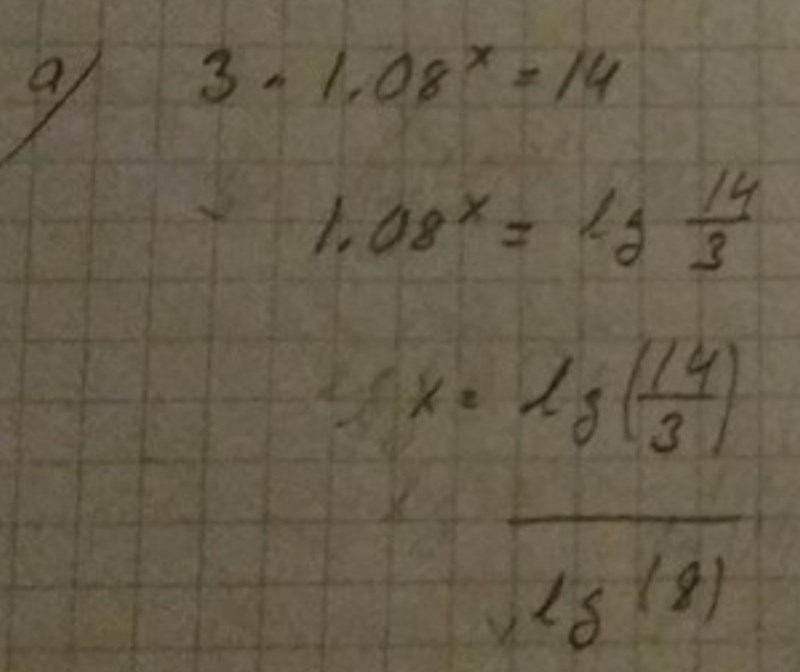 a) 3 · 1.08^x = 14
1.08^x = lg 14/3
x = lg (14/3)
lg (8)